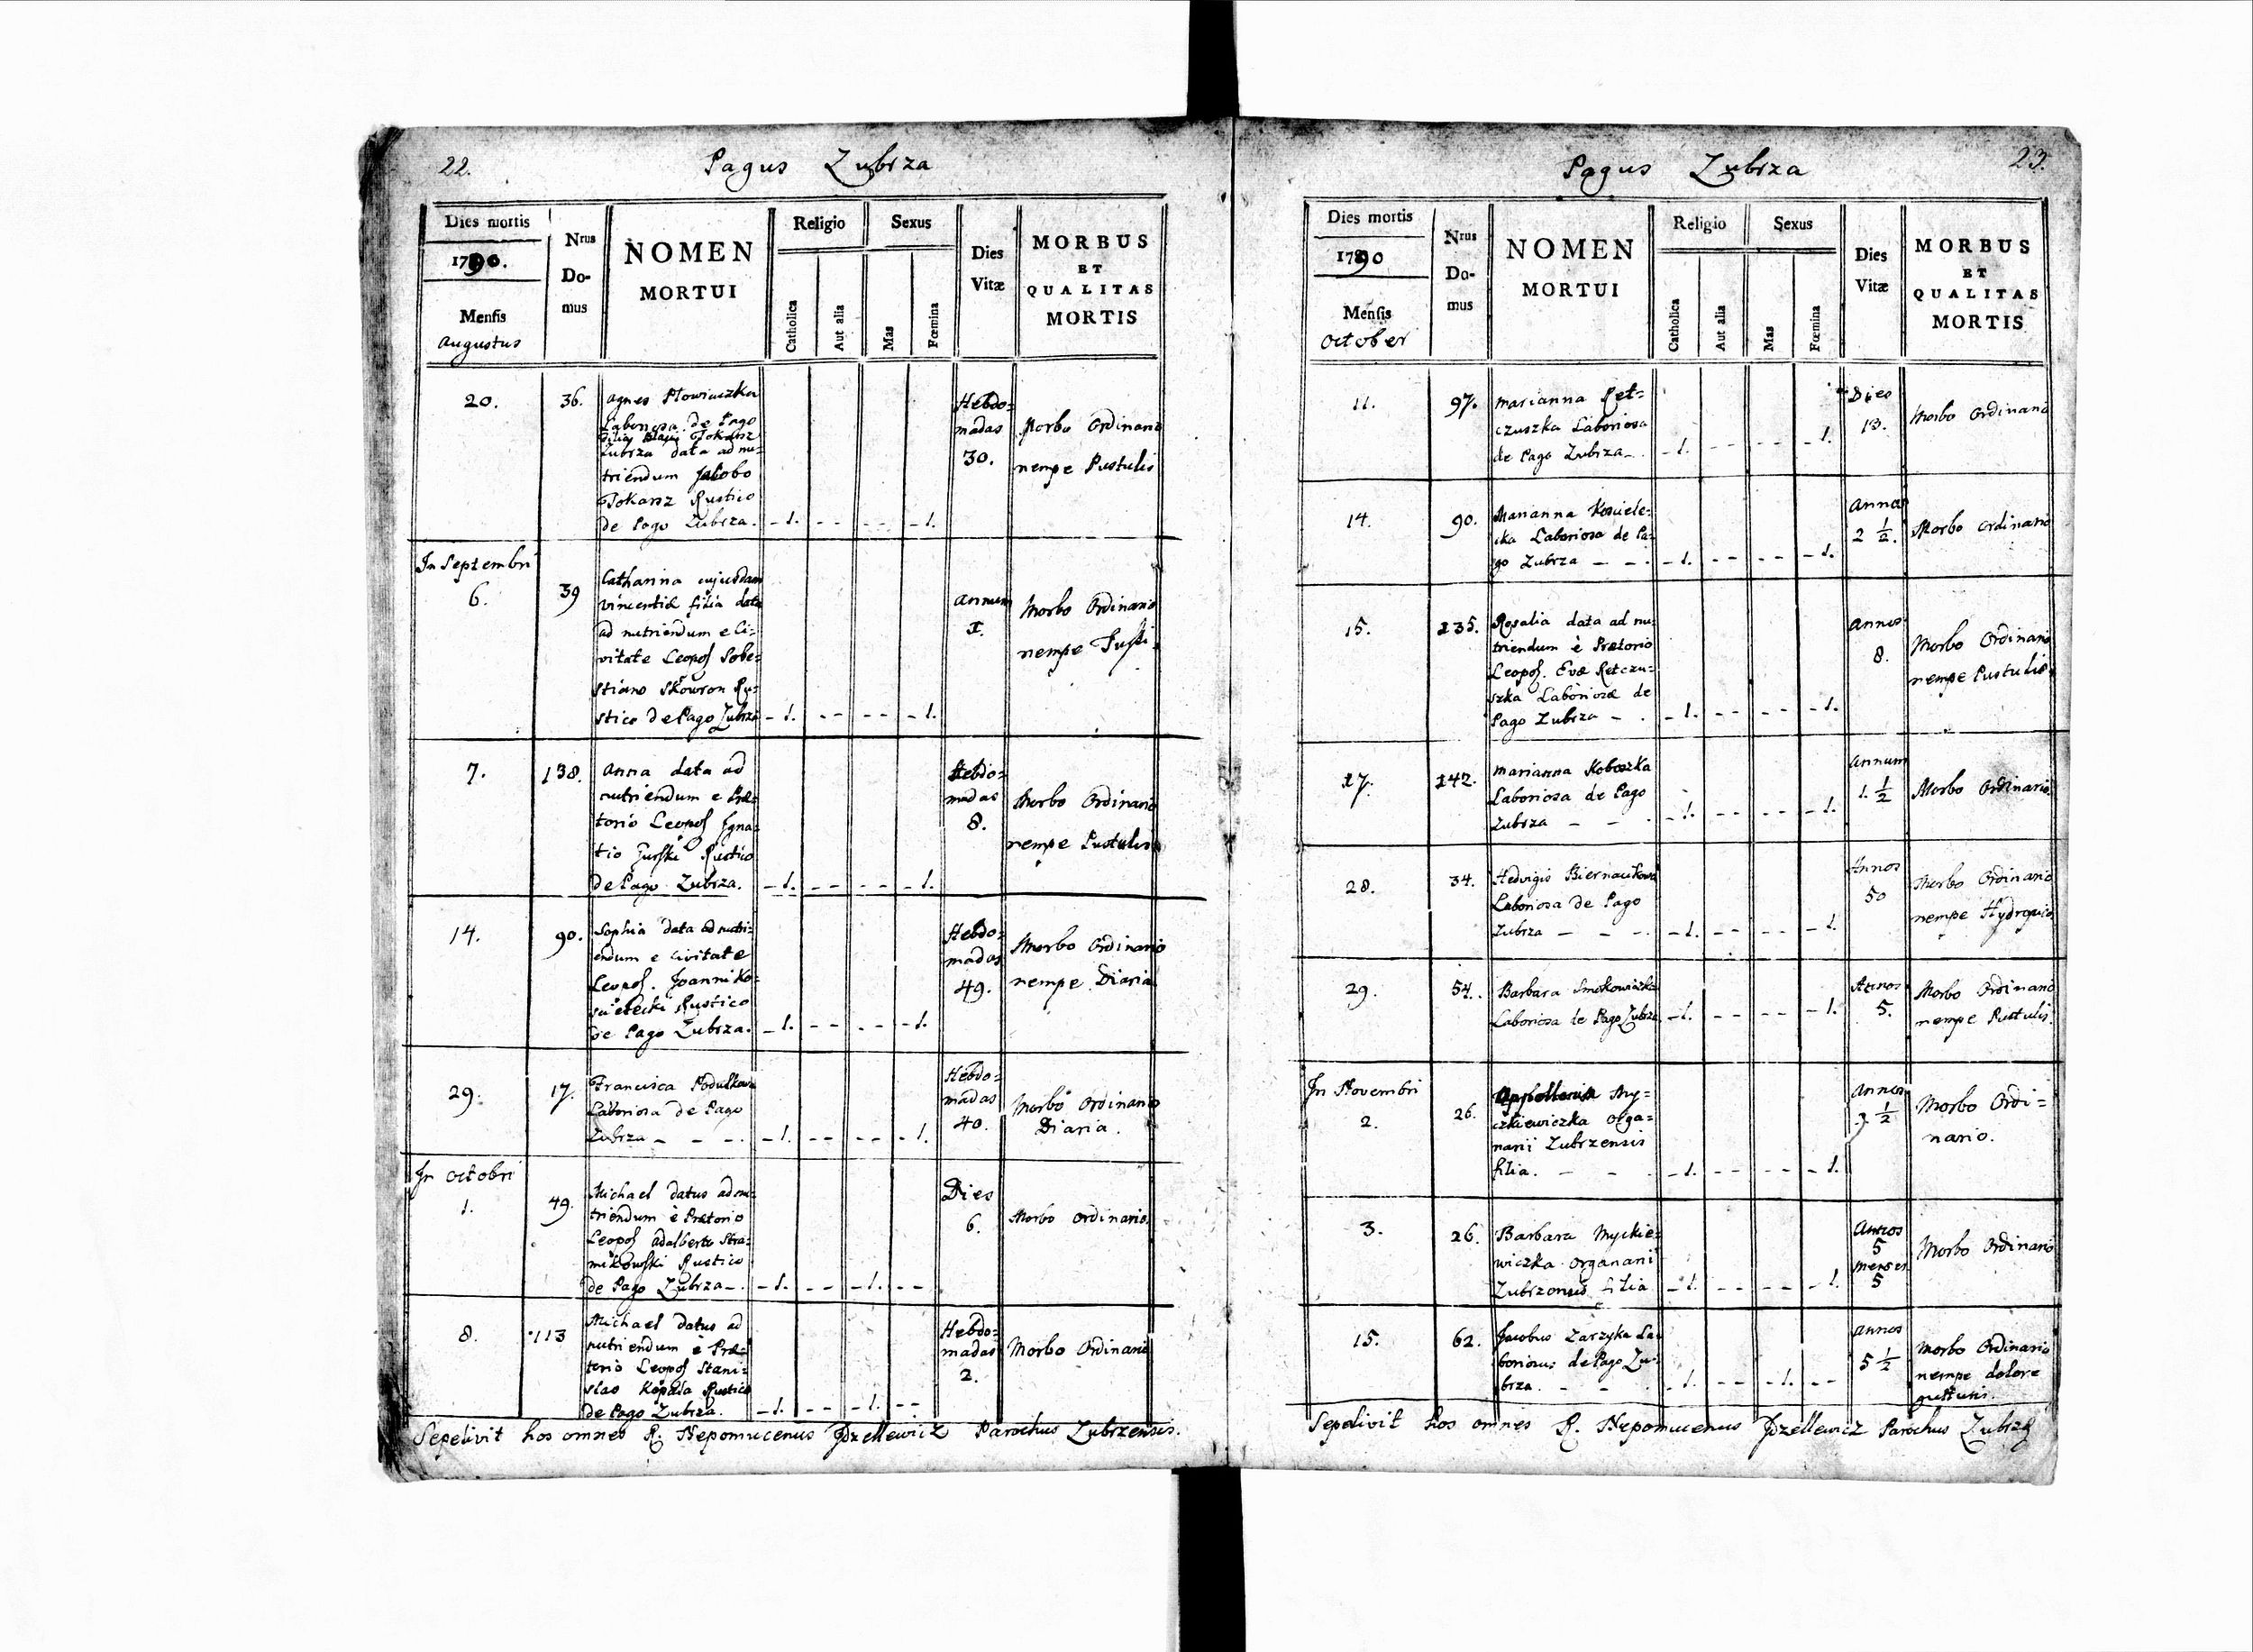 22.
Pagus Zubrza
Dies mortis
1790.
Mensis
Augustus
Nrus
Do-
mus
NOMEN
MORTUI
Religio
Catholica
Aut alia
Sexus
Mas
Fœmina
Dies
Vitæ
MORBUS
ET
QUALITAS
MORTIS
20. 36.
Agnes
Laboriosa de Pago
Filia Tokarz
Zubrza data ad nu=
triendum Jakobo
Tokarz Rustico
de Pago Zubrza. - 1. - - - - - 1.
Hebdo=
madas
30.
Morbo Ordinario
nempe Pustulis
In Septembri
6. 39
Catharina cujusdam
vincentiæ filia data
ad nutriendum e Ci=
vitate Leopol Sobe=
stiano Skowron Ru=
stico de Pago Zubrza - 1. - - - - - 1.
Annum
1.
Morbo Ordinario
nempe
7. 138.
Anna data ad
nutriendum e Præ=
torio Leopol Igna=
tio Rustico
de Pago Zubrza. - 1. - - - - - 1.
Hebdo=
madas
8.
Morbo Ordinario
nempe Pustulis
14. 90.
Sophia data ad nutri=
endum e Civitate
Leopol. Joanni Ko=
scielecki Rustico
de Pago Zubrza. - 1. - - - - - 1.
Hebdo=
madas
49.
Morbo Ordinario
nempe Diaria
29. 17.
Francisca
Laboriosa de Pago
Zubrza - - - . - 1. - - - - - 1.
Hebdo=
madas
40.
Morbo Ordinario
Diaria.
In Octobri
1. 49.
Michael datus ad nu=
triendum è Prætorio
Leopol Adalberto Stra=
mikowski Rustico
de Pago Zubrza -. - 1. - - - 1. - -
Dies
6.
Morbo Ordinario.
8. 113
Michael datus ad
nutriendum è Præ=
torio Leopol Stani=
slao Kopała Rustico
de Pago Zubrza. - 1. - - - 1. - -
Hebdo=
madas
2.
Morbo Ordinario
Sepelivit hos omnes R. Nepomucenus Jdzellewicz Parochus Zubrzensis.
23.
Pagus Zubrza
Dies mortis
1790
Mensis
October
Nrus
Do-
mus
NOMEN
MORTUI
Religio
Catholica
Aut alia
Sexus
Mas
Fœmina
Dies
Vitæ
MORBUS
ET
QUALITAS
MORTIS
11. 97.
Marianna Ret=
czuszka Laboriosa
de Pago Zubrza -. - 1. - - - - - 1.
Dies
13.
Morbo Ordinario
14. 90.
Marianna Kosciele=
cka Laboriosa de Pa=
go Zubrza - - . - 1. - - - - - 1.
Annos
2 1/2.
Morbo Ordinario
15. 135.
Rosalia data ad nu=
triendum è Prætorio
Leopol. Evæ Retczu=
szka Laboriosæ de
Pago Zubrza - . - 1. - - - - - 1.
Annos
8.
Morbo Ordinario
nempe Pustulis.
17. 142.
Marianna Koboszka
Laboriosa de Pago
Zubrza - - . - 1. - - - - - 1.
Annum
1. 1/2
Morbo Ordinario.
28. 34.
Hedvigis Biernacikowa
Laboriosa de Pago
Zubrza - - -. - 1. - - - - - 1.
Annos
50
Morbo Ordinario
nempe Hydropico
29. 54.
Barbara
Laboriosa de Pago Zubrza - 1. - - - - - 1.
Annos
5.
Morbo Ordinario
nempe Pustulis.
In Novembri
2. 26.
My=
czkiewiczka Orga=
narii Zubrzensis
filia. - - . - 1. - - - - - 1.
Annos
3 1/2
Morbo Ordi=
nario.
3. 26.
Barbara Myckie=
wiczka Organarii
Zubrzensis filia - 1. - - - - - 1.
Annos
5
Menses
5
Morbo Ordinario
15. 62.
Jacobus Zarzyka La=
boriosus de Pago Zu=
brza. - - . - 1. - - - 1. - -
Annos
5 1/2
Morbo Ordinario
nempe dolore
gutturis.
Sepelivit hos omnes R. Nepomucenus Jdzellewicz Parochus Zubrz